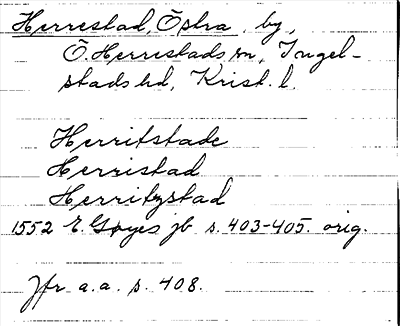 Herrestad, Östra, by,
Ö. Herrestads sn, Ingel-
stads hd, Krist. l.
Herritstade
Herristad
Herritzstad
1552 E. Gøyes jb s. 403-405. orig.
Jfr a.a. s. 408.